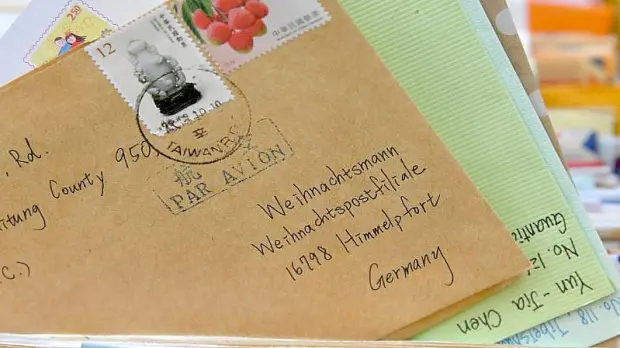 2.50
12
中華民國郵票
中華民國郵票
TAIWAN
航
PAR AVION
Rd.
itung County 950,
C.)
Weihnachtsmann
Weihnachtspostfiliale
16798 Himmelpfort
Germany
Yun-Jia Chen
No.